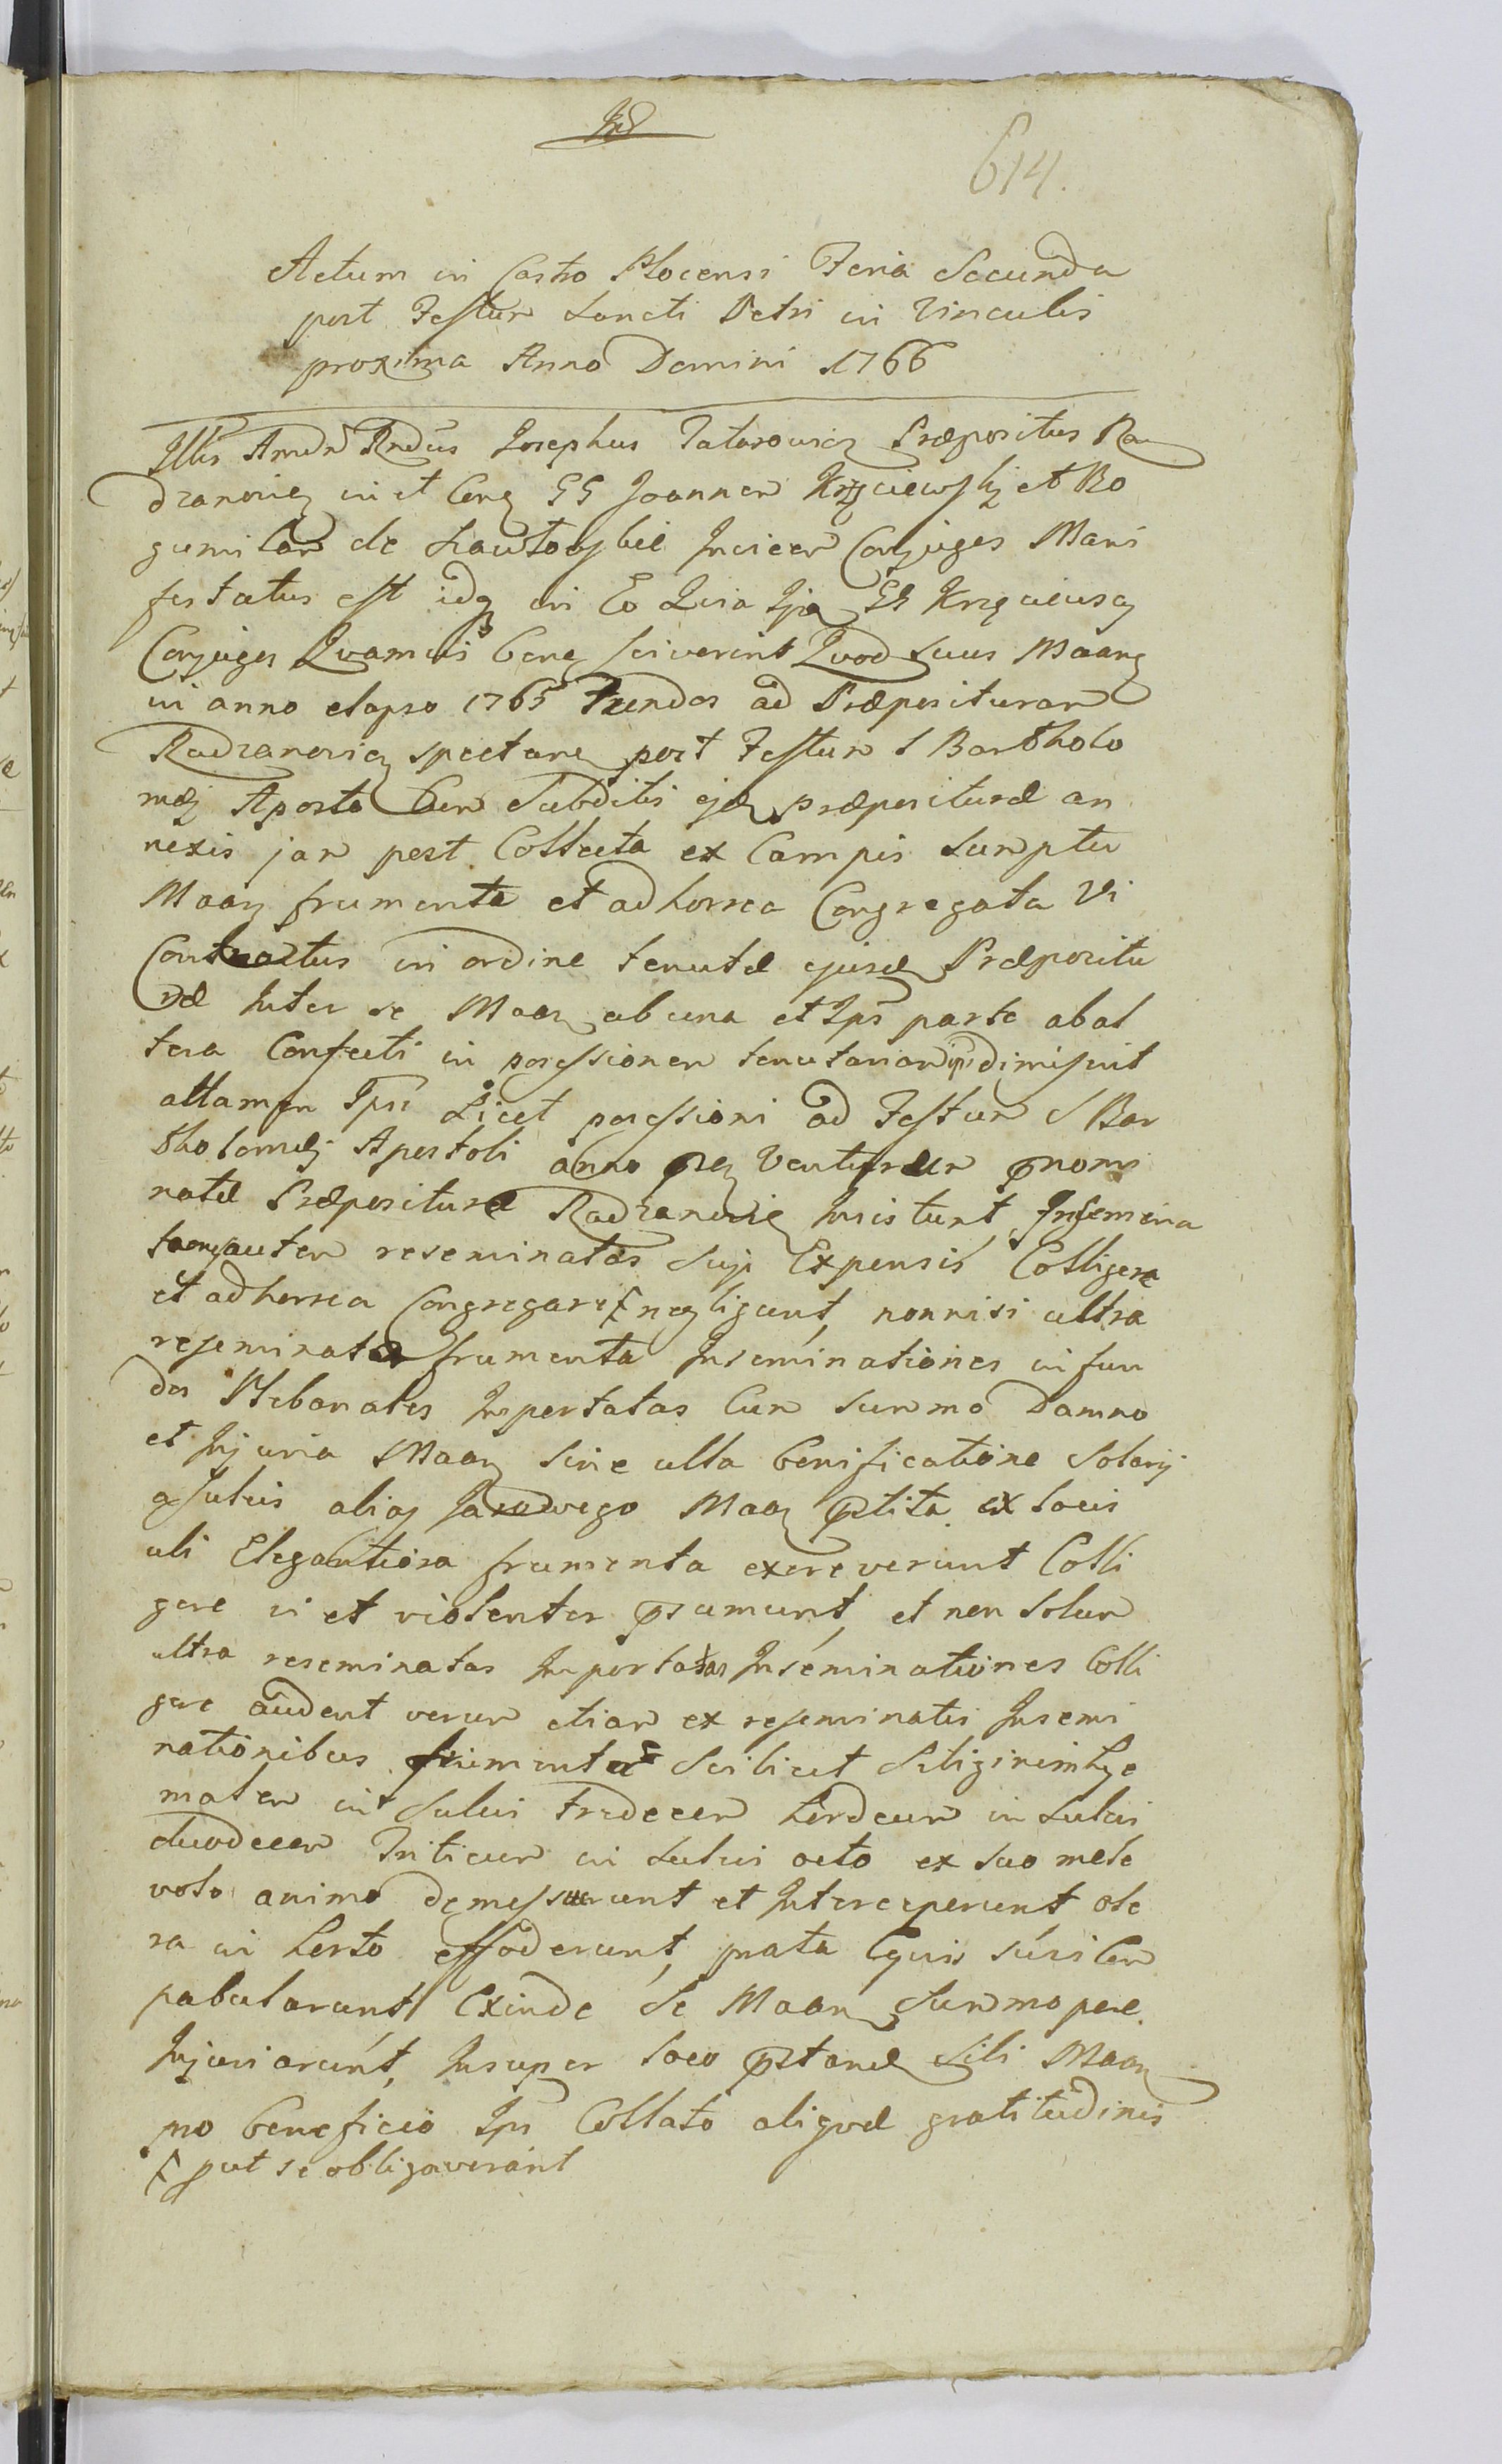 Ind
614.
Actum in Castro Plocensi Feria Secunda
post Festum Sancti Petri in Vinculis
proxima Anno Domini 1766
Illris Amdn Rndus Josephus Tatarowicz Præpositus Ra
dzanovien in et Conq GG Joannem et Bo
gumilam de invicem Conjuges Mani
festatus est idq in Eo Quia Ipi GG
Conjuges Qvamvis bene sciverint Qvod suus Maang
in anno elapso 1765 Fundos ad Præposituram
Radzanovien spectane post Festum S Bartholo
mæj Aposto cum Subditis ejd præposituræ an
nexis jam post Collecta ex Campis sumptu
Maan frumenta et ad horrea Congregata Vi
Contractus in ordine tenutæ ejusd Præpositu
ræ Inter se Maan ab una et Ips parte ab al
tera Confecti in possessionem tenutariam ips dimisit
attamen Ipsi Licet possessioni ad Festum S Bar
tholomæj Apostoli anno pñ Venturum pnomi
natæ Præposituræ Radzanovien Insistunt, Insemina
autem reseminatas Suis Expensis Colligere
et ad horrea Congregare negligunt, nonnisi ultra
reseminata frumenta Inseminationes in fun
dos Plebanales Importatas Cum summo Damno
et Injuria Maan sine ulla bonificatione Solarij
a sulcis alias Maan ex locis
ubi Elegantiora frumenta excreverunt Colli
gere vi et violenter psumunt, et non solum
ultra reseminatas Importatas Inseminationes Colli
gere audent verum etiam ex reseminatis Insemi
nationibus frumenta Scilicet Siliginem hye
malem in Sulcis Tredecem hordeum in Sulcis
duodecem Triticum in Sulcis octo ex suo male
volo animo demessuerunt et Interceperunt ole
ra in horto effoderunt, prata Equis suis
pabularunt Exinde Se Maan Summopere
Injuriarunt, Insuper loco pstand Sibi Maan
pro beneficio Ips Collato aliqvod gratitudinis
put se obligaverant